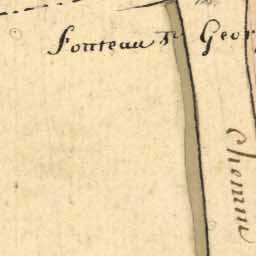 fonteau St Geor
Chemin